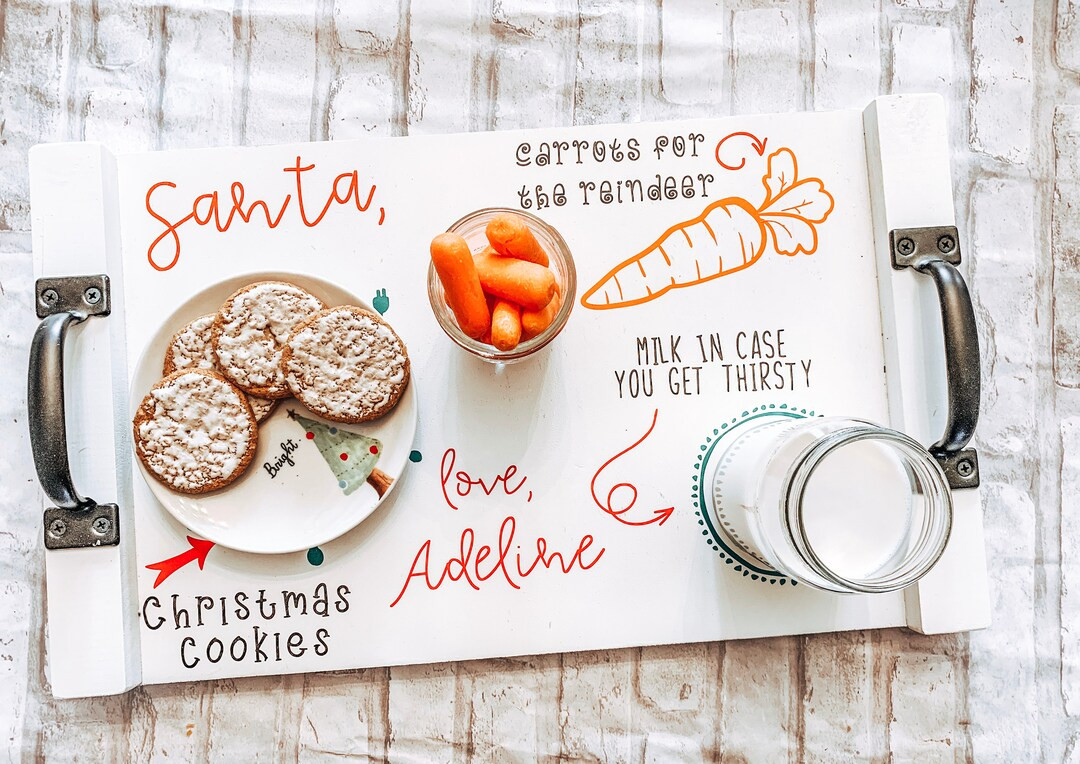 Santa,
Carrots for
the reindeer
MILK IN CASE
YOU GET THIRSTY
Bright
love,
Adeline
Christmas
Cookies